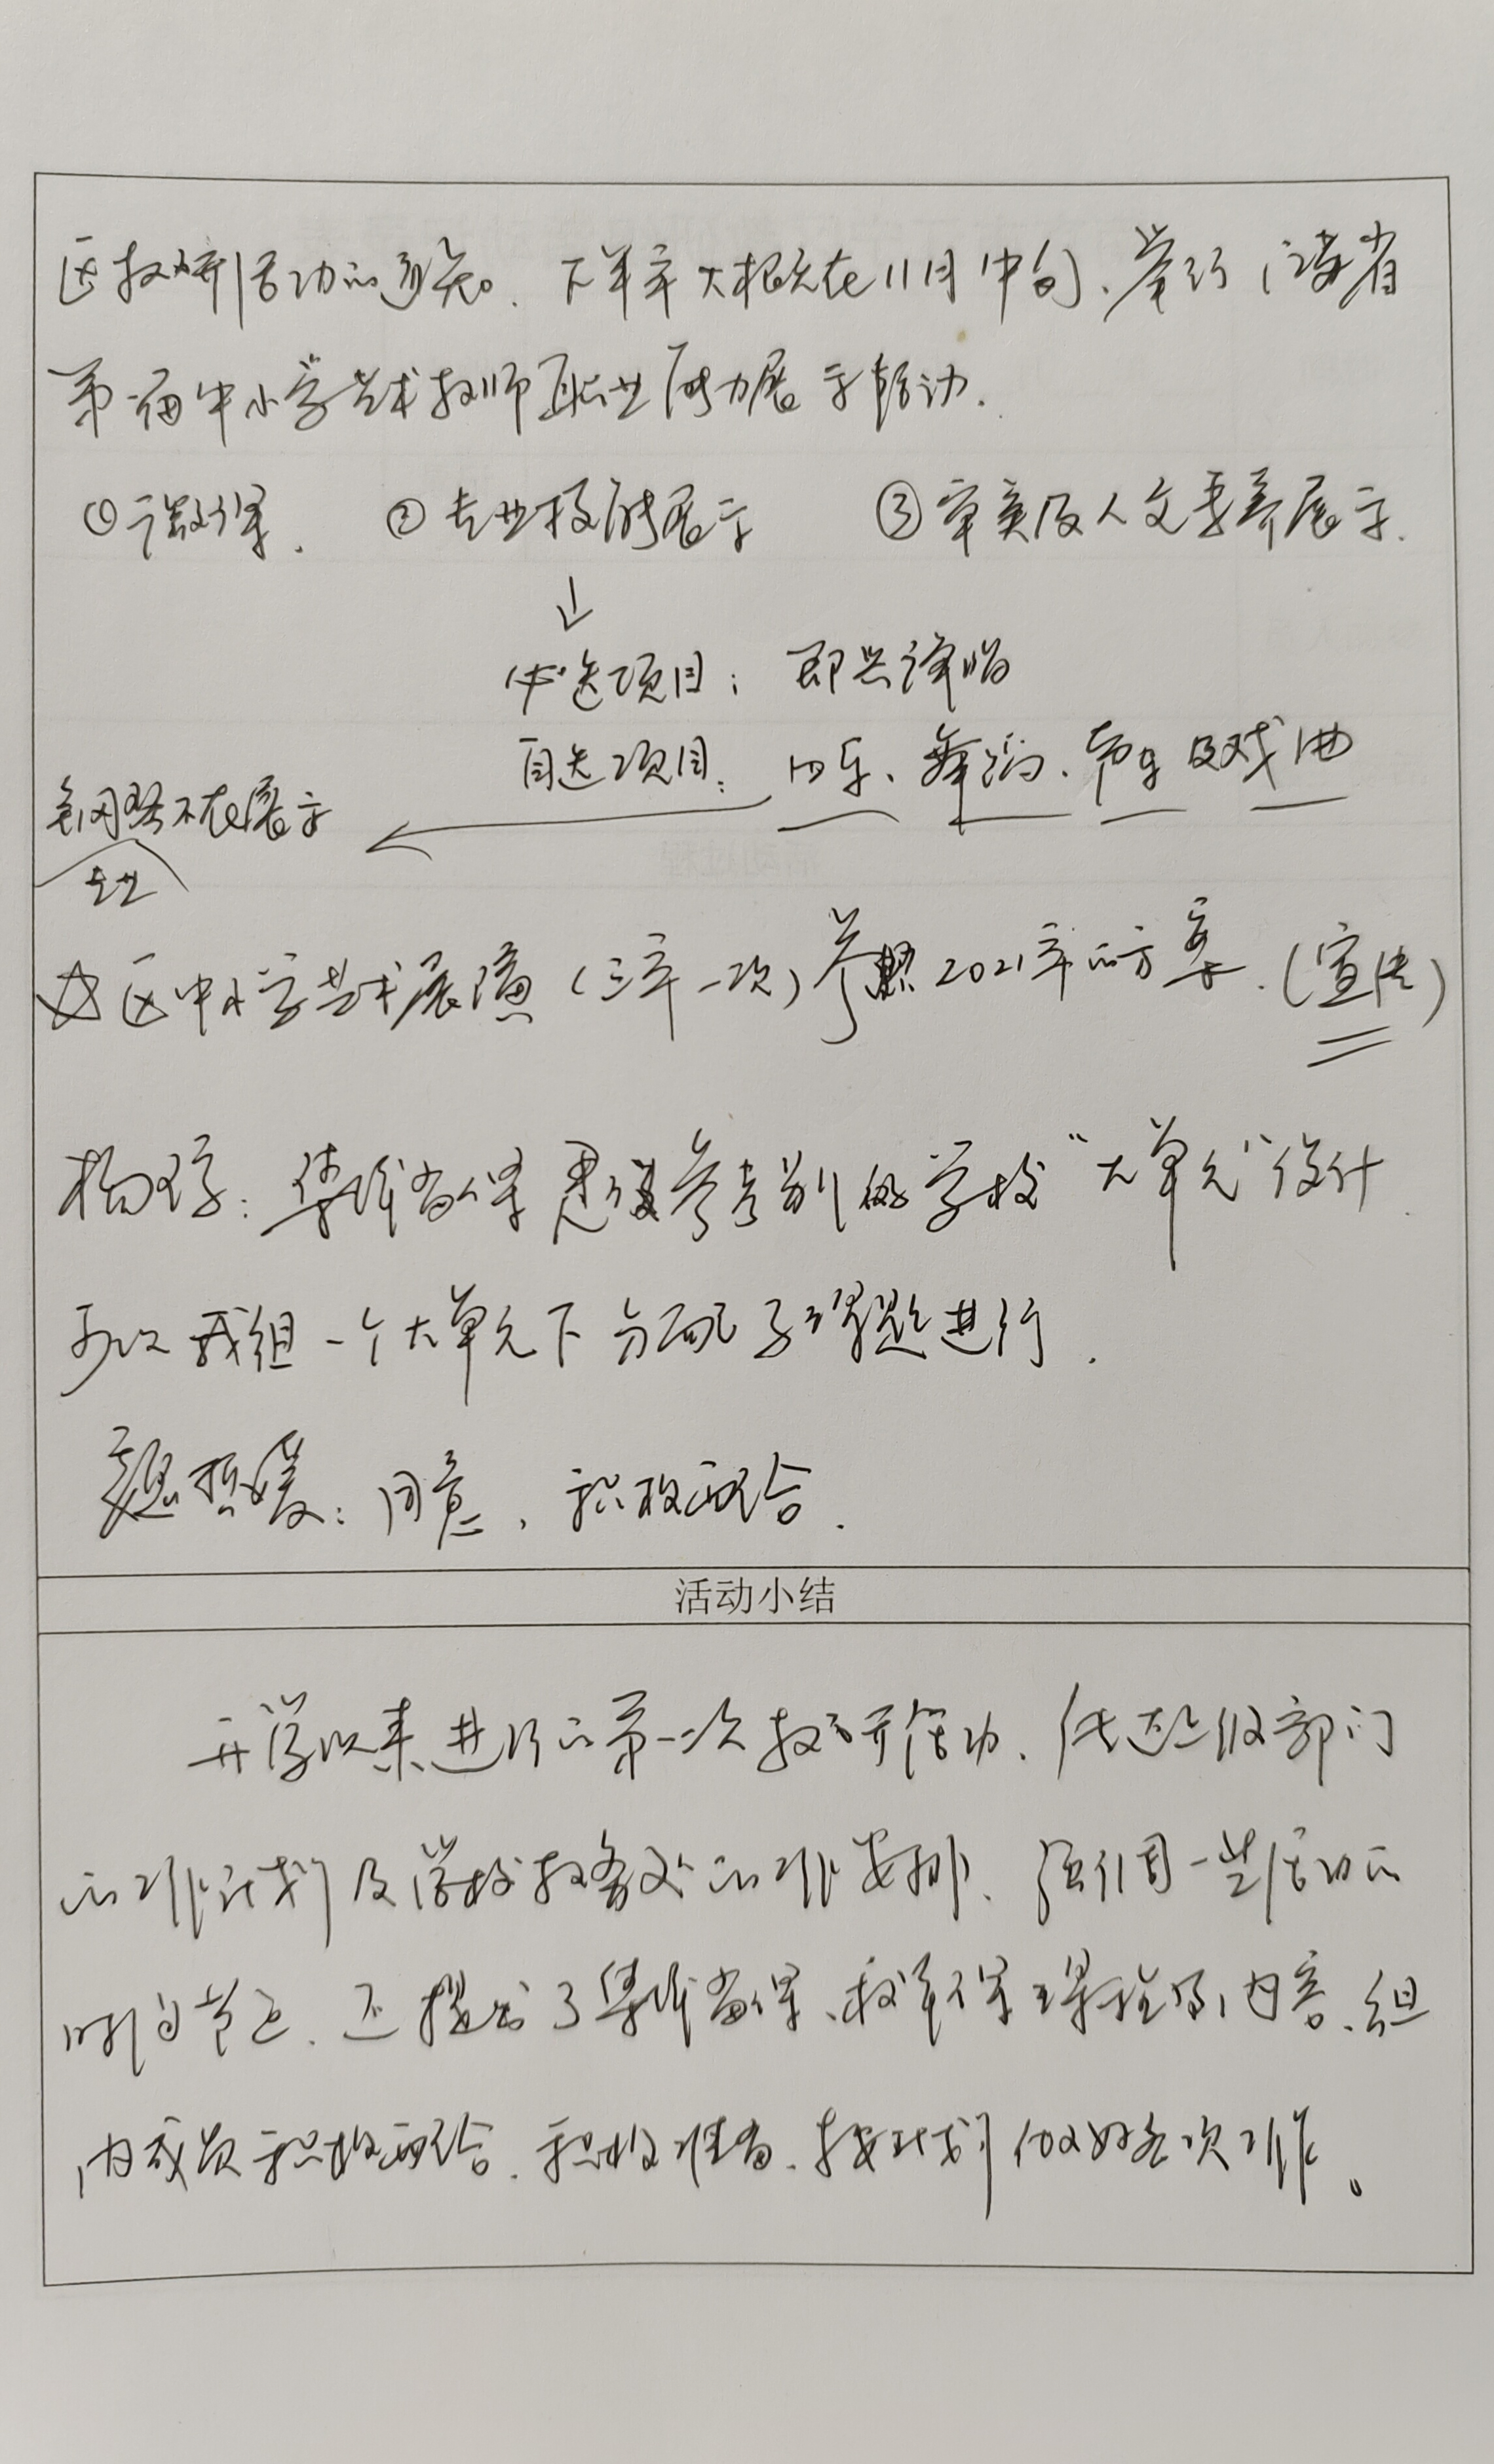 区教研活动的通知。下半年大概在11月中旬、举行江苏省
第一届中小学艺术教师职业能力展示活动.
①微课. ②专业技能展示 ③审美及人文素养展示.
↓
必选项目: 即兴弹唱
自选项目: 声乐、舞蹈、器乐及戏曲
钢琴不在展示
专业
☆区中小学艺术展演(三年一次)参照2021年的方案.(宣传)
集体备课 思缕参考别的学校“大单元”设计.
可以我组一个大单元下分配子课题进行.
同意,积极配合.
活动小结
开学以来进行的第一次教研活动、传达上级部门
的工作计划及学校教务处的工作安排、强调一些活动的
时间节点.还提出了集体备课、校本课程及内容、组
内成员积极配合.积极准备.按计划做好各次工作。